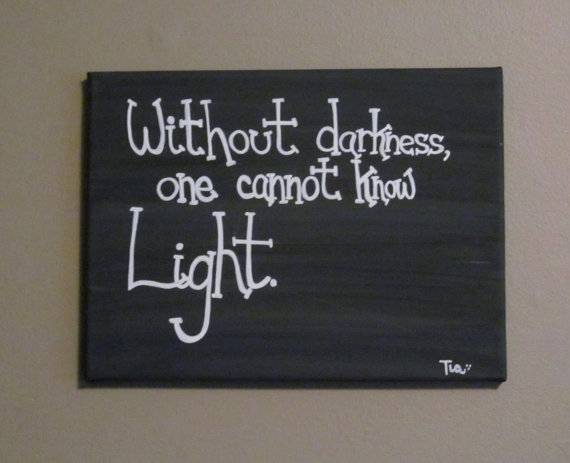 Without darkness,
one cannot know
Light.
Tia